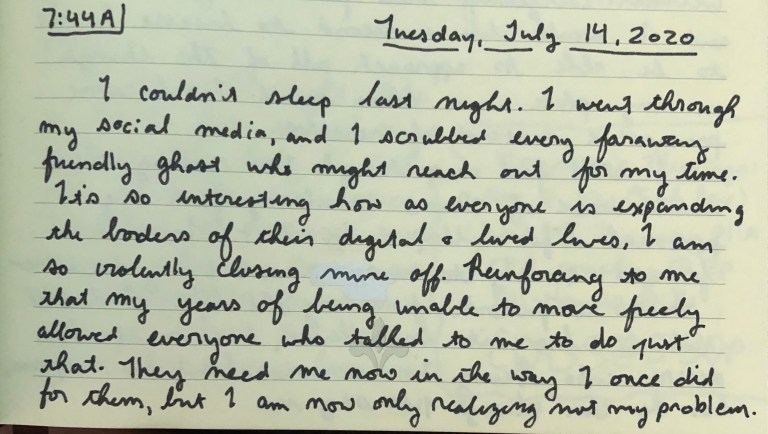 7:44A
Tuesday, July 14, 2020
I couldn't sleep last night. I went through
my social media, and I scrubbed every faraway
friendly ghost who might reach out for my time.
It's so interesting how as everyone is expanding
the boders of their digital & lived lives, I am
so violently closing mine off. Reinforcing to me
that my years of being unable to move freely
allowed everyone who talked to me to do just
that. They need me now in the way I once did
for them, but I am now only realizing not my problem.